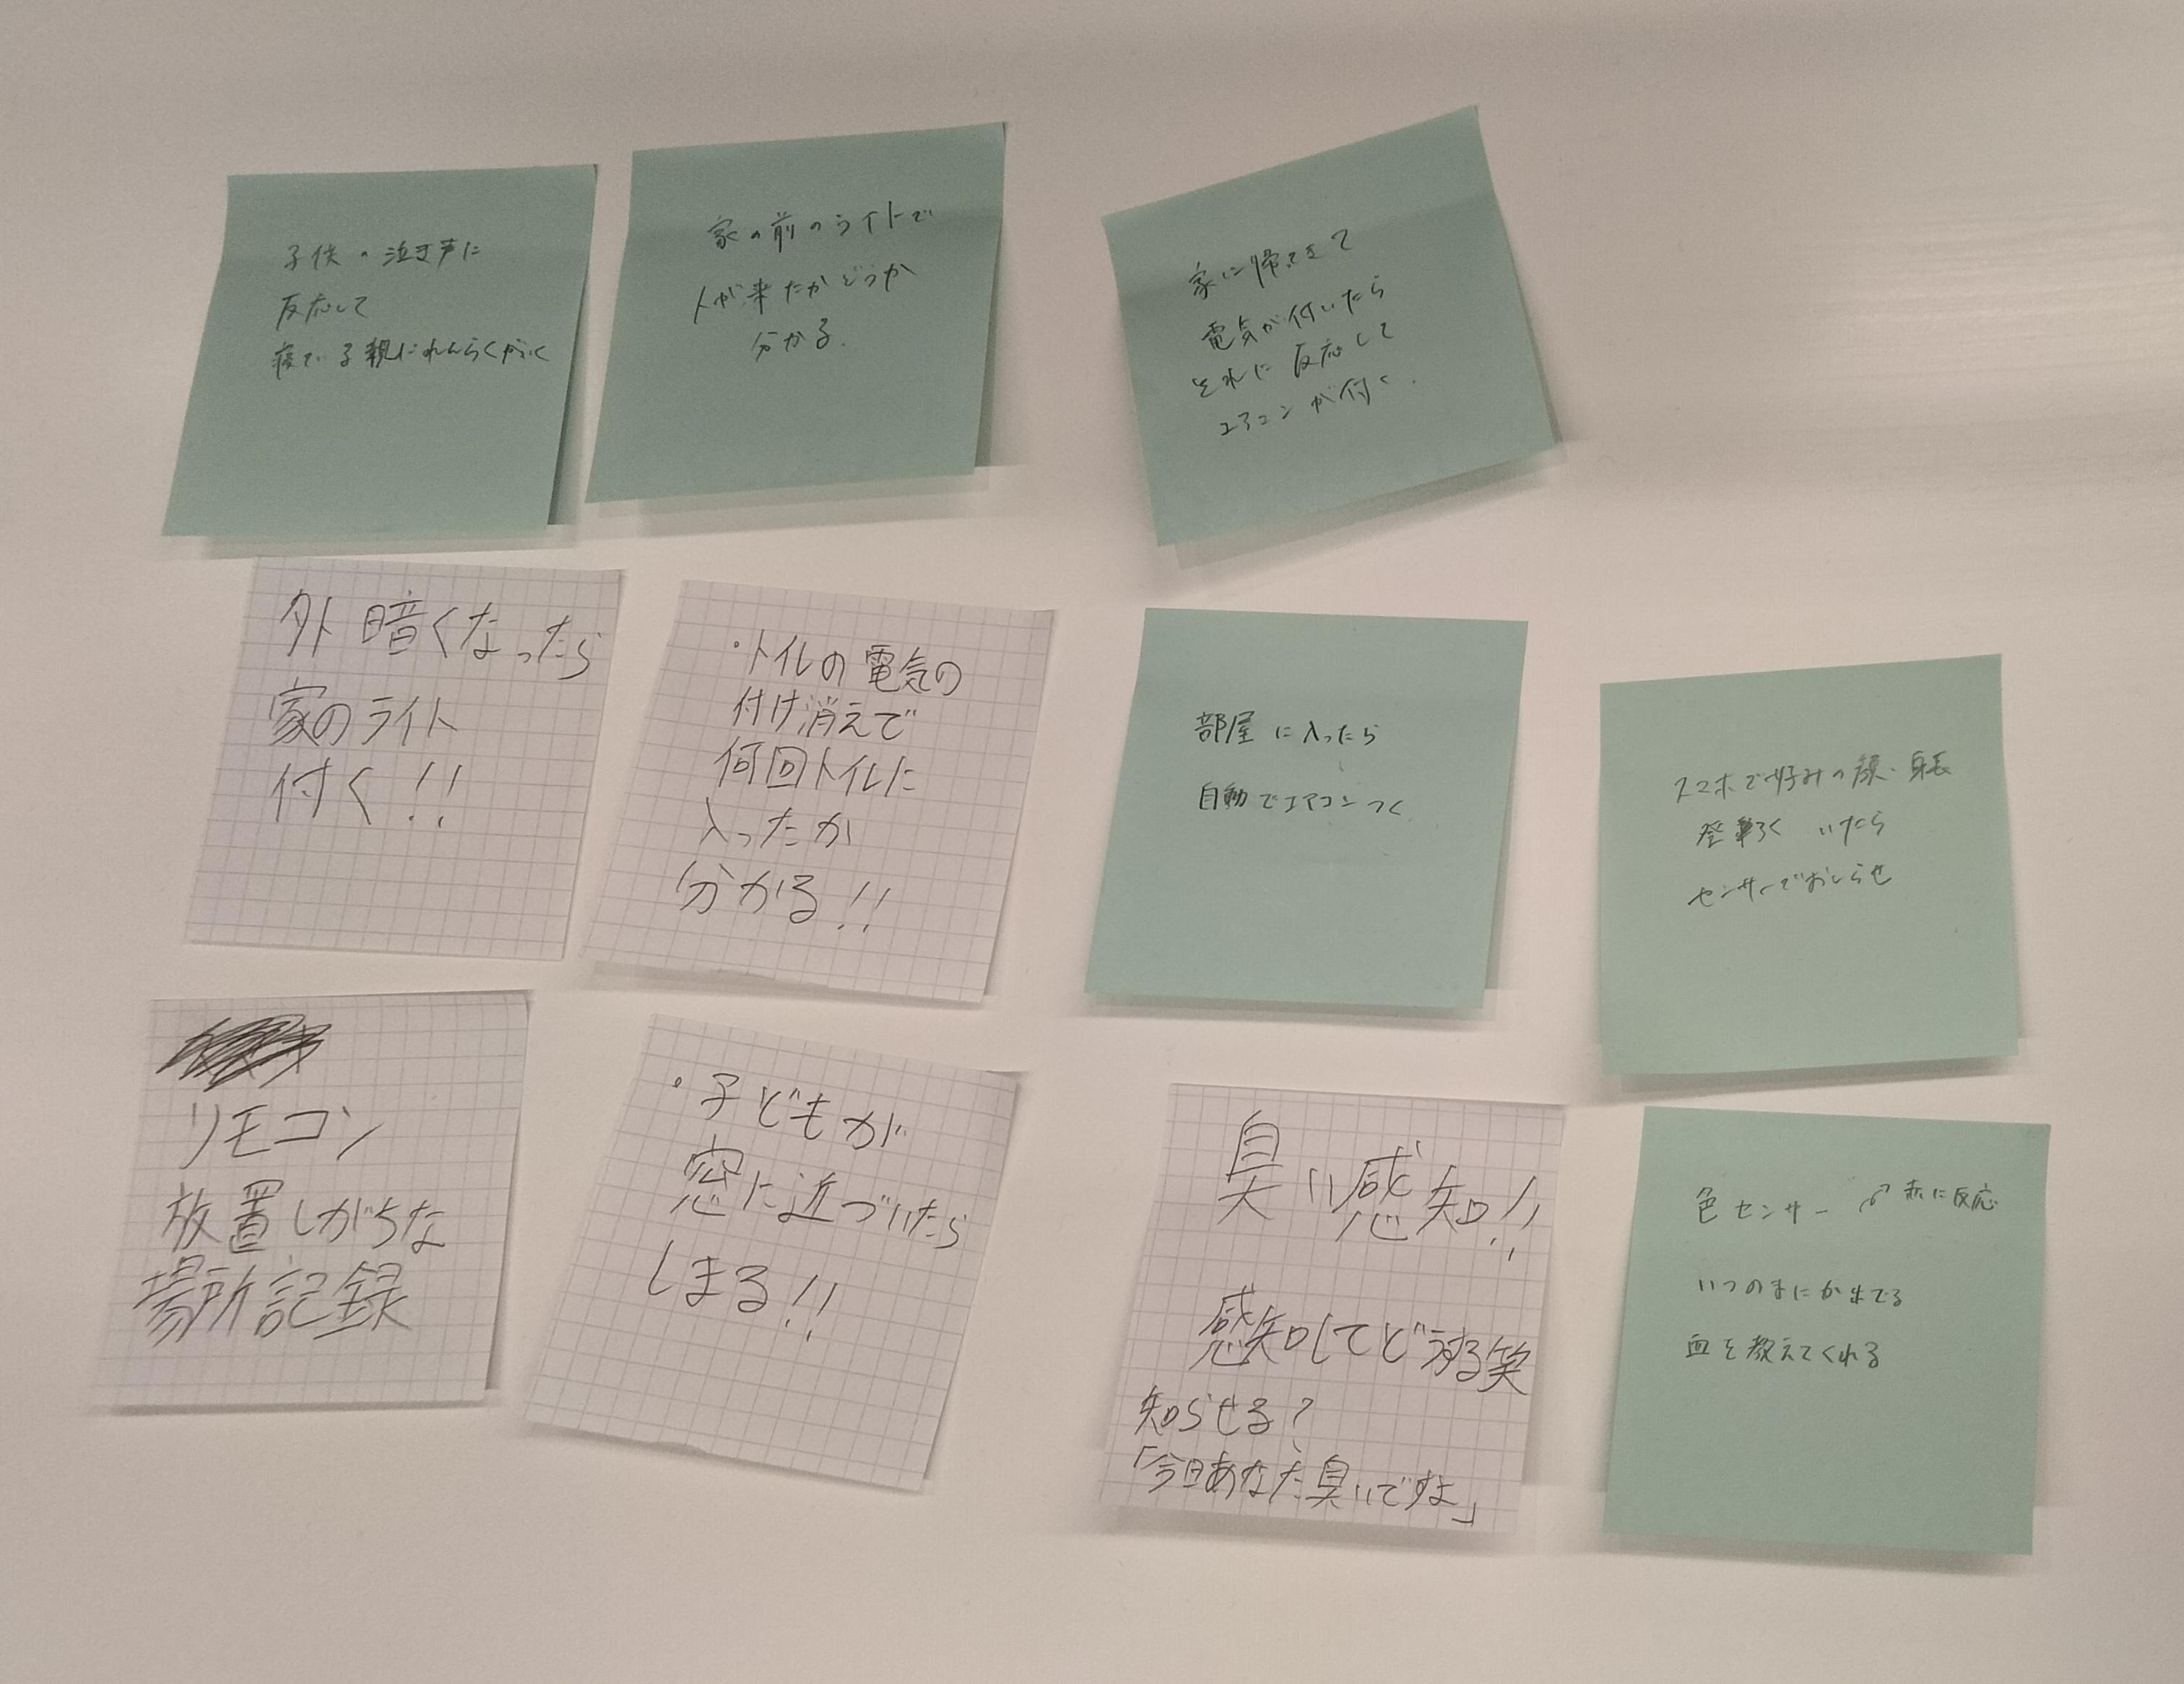 子供の泣き声に
反応して
寝ている親にれんらくがいく
家の前のライトで
人が来たかどうか
分かる.
家に帰ってきて
電気が付いたら
それに反応して
エアコンが付く.
外暗くなったら
家のライト
付く!!
・トイレの電気の
付け消えで
何回トイレに
入ったか
分かる!!
部屋に入ったら
自動でエアコンつく
スマホで好みの顔・身長
登ろく いたら
センサーでおしらせ
リモコン
放置しがちな
場所記録
・子どもが
窓に近づいたら
しまる!!
臭い感知!!
感知してどうする笑
知らせる?
「今日あなた臭いですよ」
色センサー 赤に反応
いつのまにか出てる
血を教えてくれる